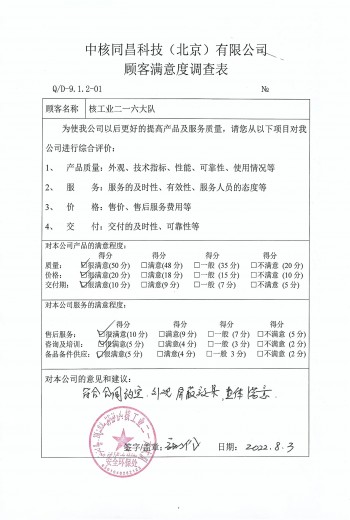 中核同昌科技（北京）有限公司
顾客满意度调查表
Q/D-9.1.2-01 №
顾客名称 核工业二一六大队
为使我公司以后更好的提高产品及服务质量，请您从以下项目对我
公司进行综合评价：
1、 产品质量：外观、技术指标、性能、可靠性、使用情况等
2、 服 务：服务的及时性、有效性、服务人员的态度等
3、 价 格：售价、售后服务费用等
4、 交 付：交付的及时性、可靠性等
对本公司产品的满意程度：
得分 得分 得分 得分
质量： ☑很满意(50 分) □满意(48 分) □一般 (35 分) □不满意 (20 分)
价格： ☑很满意(20 分) □满意(18 分) □一般 (15 分) □不满意 (10 分)
交付期： ☑很满意(10 分) □满意(9 分) □一般 (7 分) □不满意 (5 分)
对本公司服务的满意程度：
得分 得分 得分 得分
售后服务： ☑很满意(10 分) □满意(9 分) □一般 (7 分) □不满意 (5 分)
咨询及培训： ☑很满意(5 分) □满意(4 分) □一般 (3 分) □不满意 (2 分)
备品备件供应： ☑很满意(5 分) □满意(4 分) □一般 3 分) □不满意 (2 分)
对本公司的意见和建议：
符合合同约定，外观 屏蔽效果 整体满意
签字/盖章： 日期：2022.8.3
安全环保处